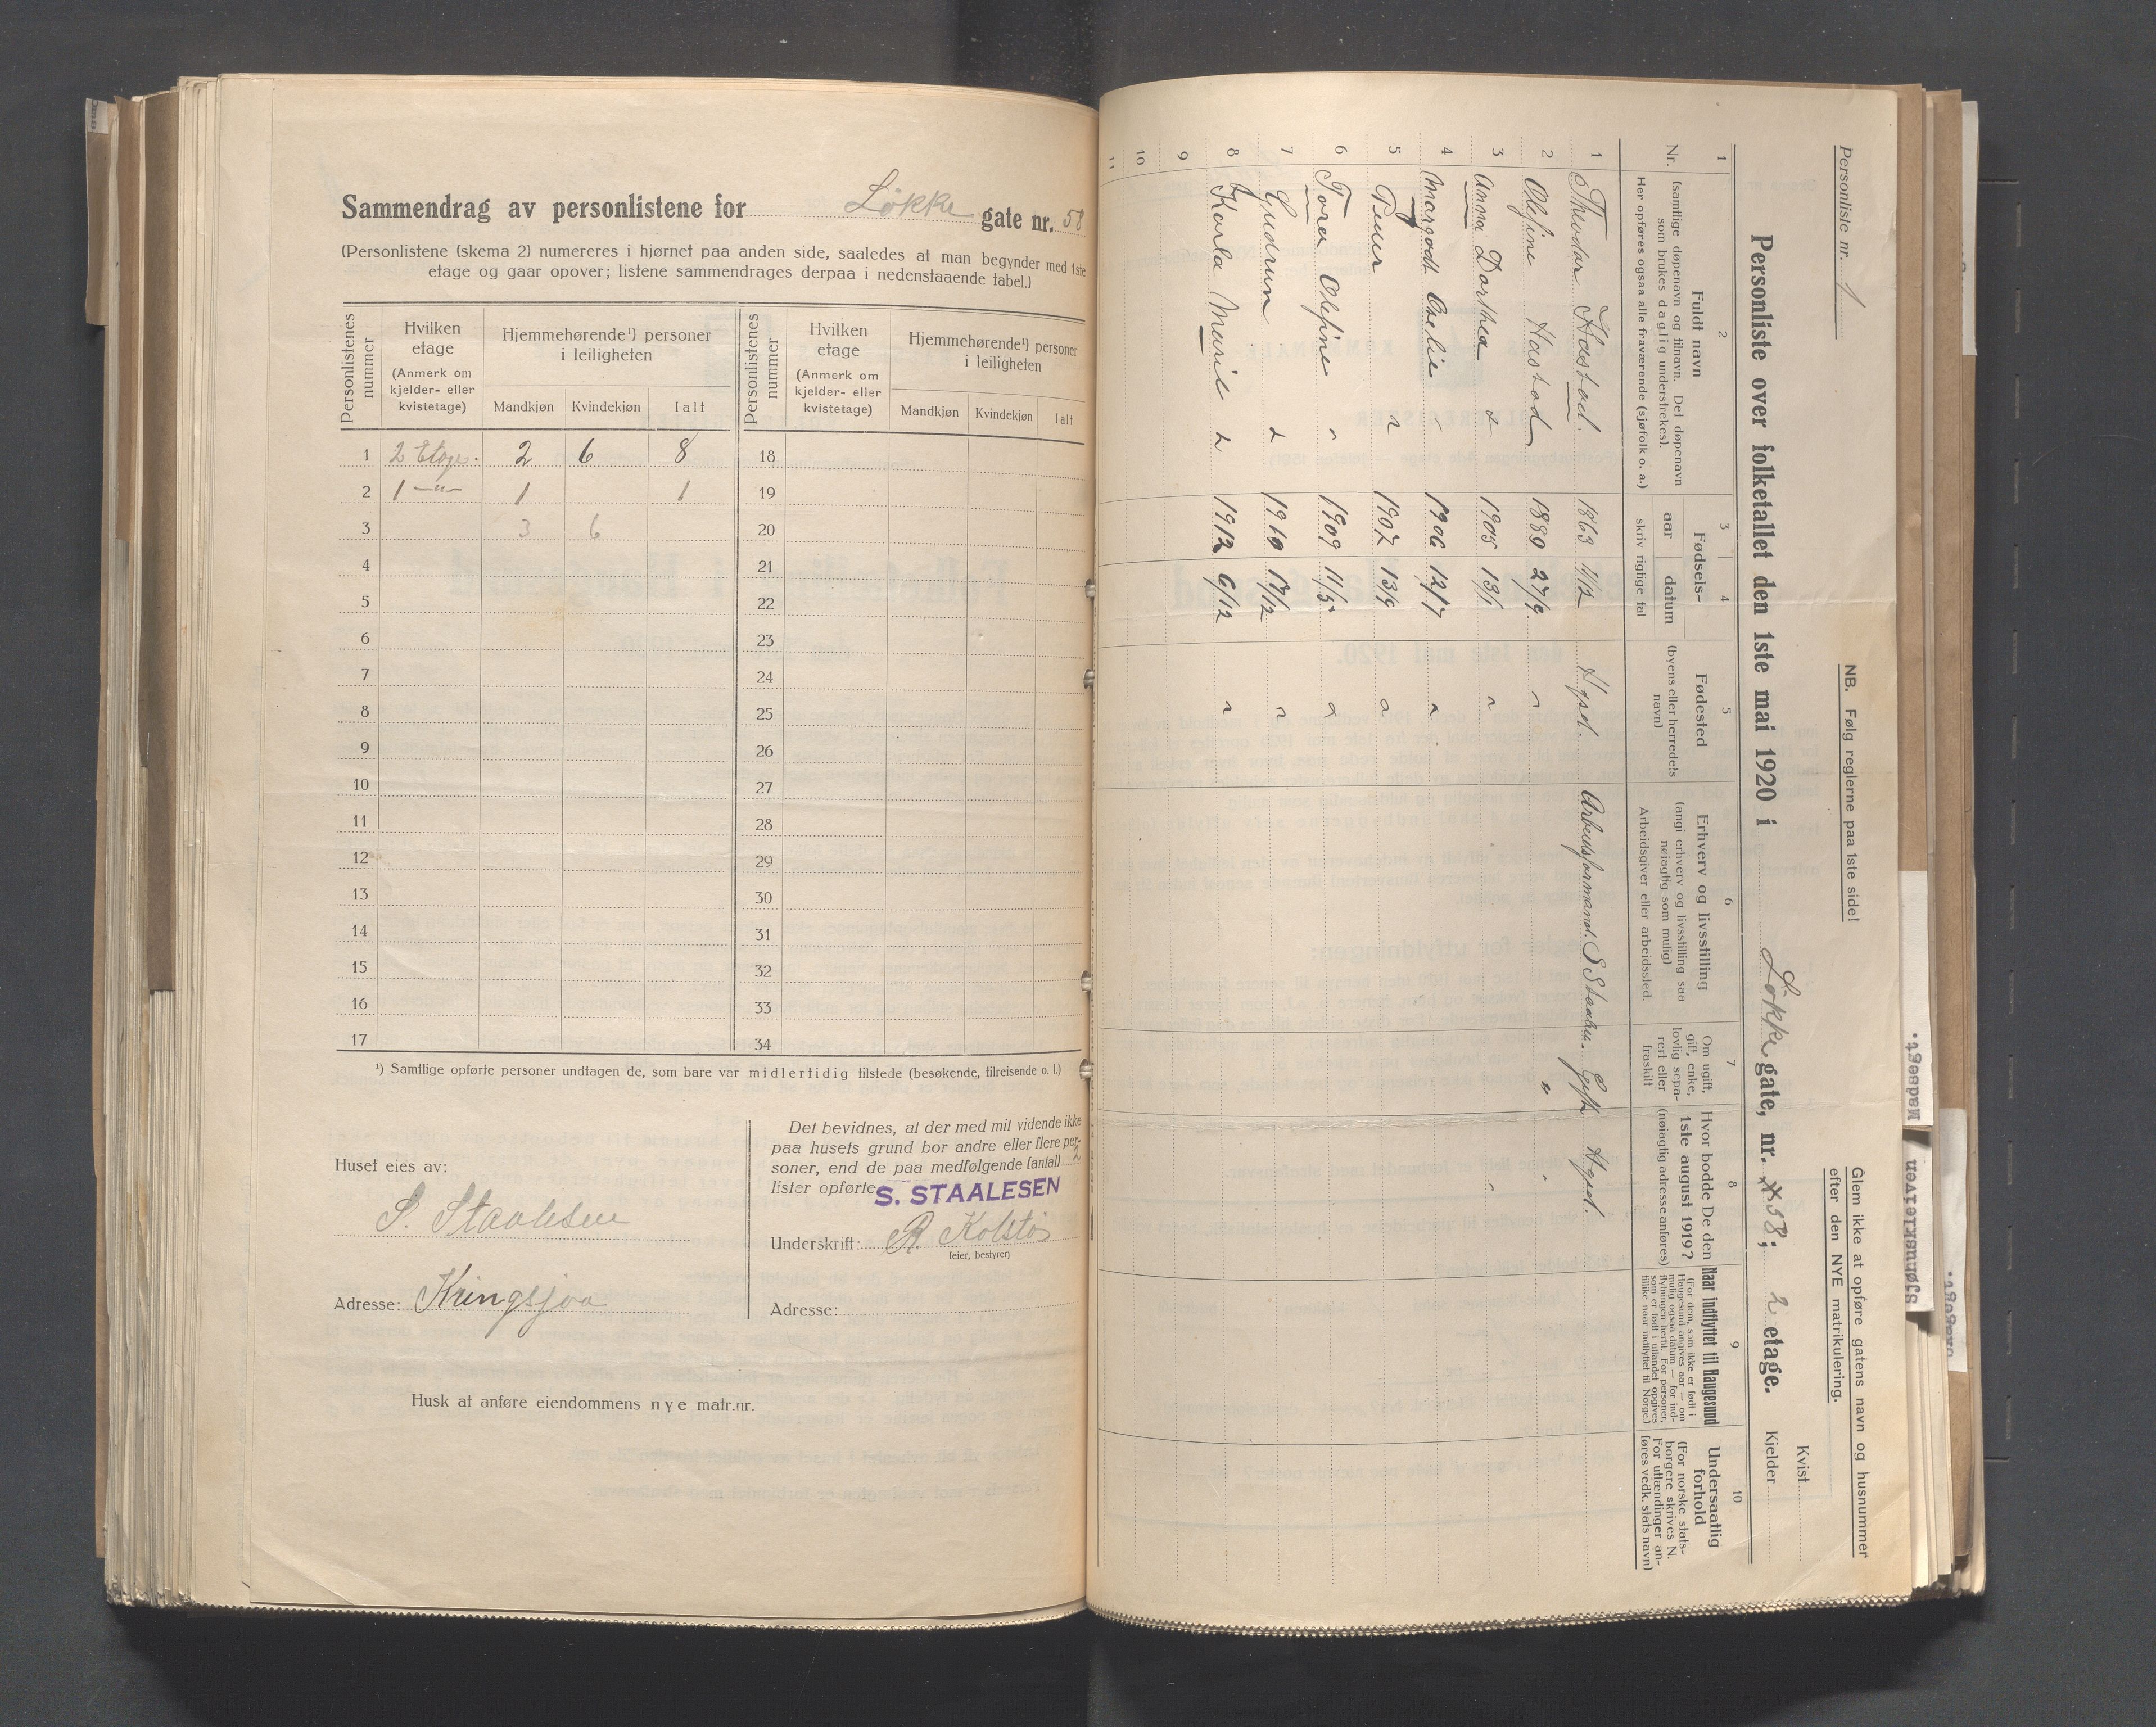 Sammendrag av personlistene for Løkke gate nr. 58
(Personlistene (skema 2) numereres i hjørnet paa anden side, saaledes at man begynder med 1ste
etage og gaar opover; listene sammendrages derpaa i nedenstaaende tabel.)
Personlistenes nummer
Hvilken etage (Anmerk om kjelder- eller kvistetage)
Hjemmehørende¹) personer i leiligheten
Mandkjøn Kvindekjøn Ialt
Personlistenes nummer
Hvilken etage (Anmerk om kjelder- eller kvistetage)
Hjemmehørende¹) personer i leiligheten
Mandkjøn Kvindekjøn Ialt
1 2 Etage. 2 6 8 18
2 1 —"— 1 1 19
3 3 6 20
4 21
5 22
6 23
7 24
8 25
9 26
10 27
11 28
12 29
13 30
14 31
15 32
16 33
17 34
¹) Samtlige opførte personer undtagen de, som bare var midlertidig tilstede (besøkende, tilreisende o. l.)
Huset eies av:
S. Staalesen
Adresse: Kringsjaa
Det bevidnes, at der med mit vidende ikke
paa husets grund bor andre eller flere per-
soner, end de paa medfølgende (antal) 2
lister opførte
S. STAALESEN
Underskrift: R. Kolstø
(eier, bestyrer)
Adresse:
Husk at anføre eiendommens nye matr.nr.
Personliste nr. 1
NB. Følg reglerne paa 1ste side!
Glem ikke at opføre gatens navn og husnummer
efter den NYE matrikulering.
Personliste over folketallet den 1ste mai 1920 i Løkke gate, nr. 58; 2 etage.
Kvist
Kjelder
1 2 3 4 5 6 7 8 9 10
Nr.
Fuldt navn
(samtlige døpenavn og tilnavn. Det døpenavn
som brukes daglig understrekes).
Her opføres ogsaa alle fraværende (sjøfolk o. a.)
Fødsels-
aar datum
skriv rigtige tal
Fødested
(byens eller herredets
navn)
Erhverv og livsstilling
(angi erhverv og livsstilling saa
nøiagtig som mulig)
Arbeidsgiver eller arbeidssted.
Om ugift,
gift, enke,
lovlig sepa-
rert eller
fraskilt
Hvor bodde De den
1ste august 1919?
(nøiagtig adresse anføres)
Naar indflyttet til Haugesund
(For dem, som ikke er født i
Haugesund angives aar — om
mulig ogsaa datum — for ind-
flytningen hertil. For personer,
som er født i utlandet opgives
tillike naar indflyttet til Norge.)
Undersaatlig
forhold
(For norske stats-
borgere skrives N.
For utlændinger an-
føres vedk. stats navn)
1 Theodor Hastad. 1863 11/12 Hgsd. Arbeidsformand. S Staalen. Gift Hgsd.
2 Olefine Hastad 1880 27/9 " " "
3 Anna Dorthea " 1905 13/1 " "
4 Margodt Oselie " 1906 12/7 "
5 Peder " 1907 13/9 "
6 Tora Olefine " 1909 11/5 "
7 Gudrun " 1910 17/12 "
8 Karla Marie " 1912 6/12 "
9
10
11
Madsegt.
Sjøhuskriven